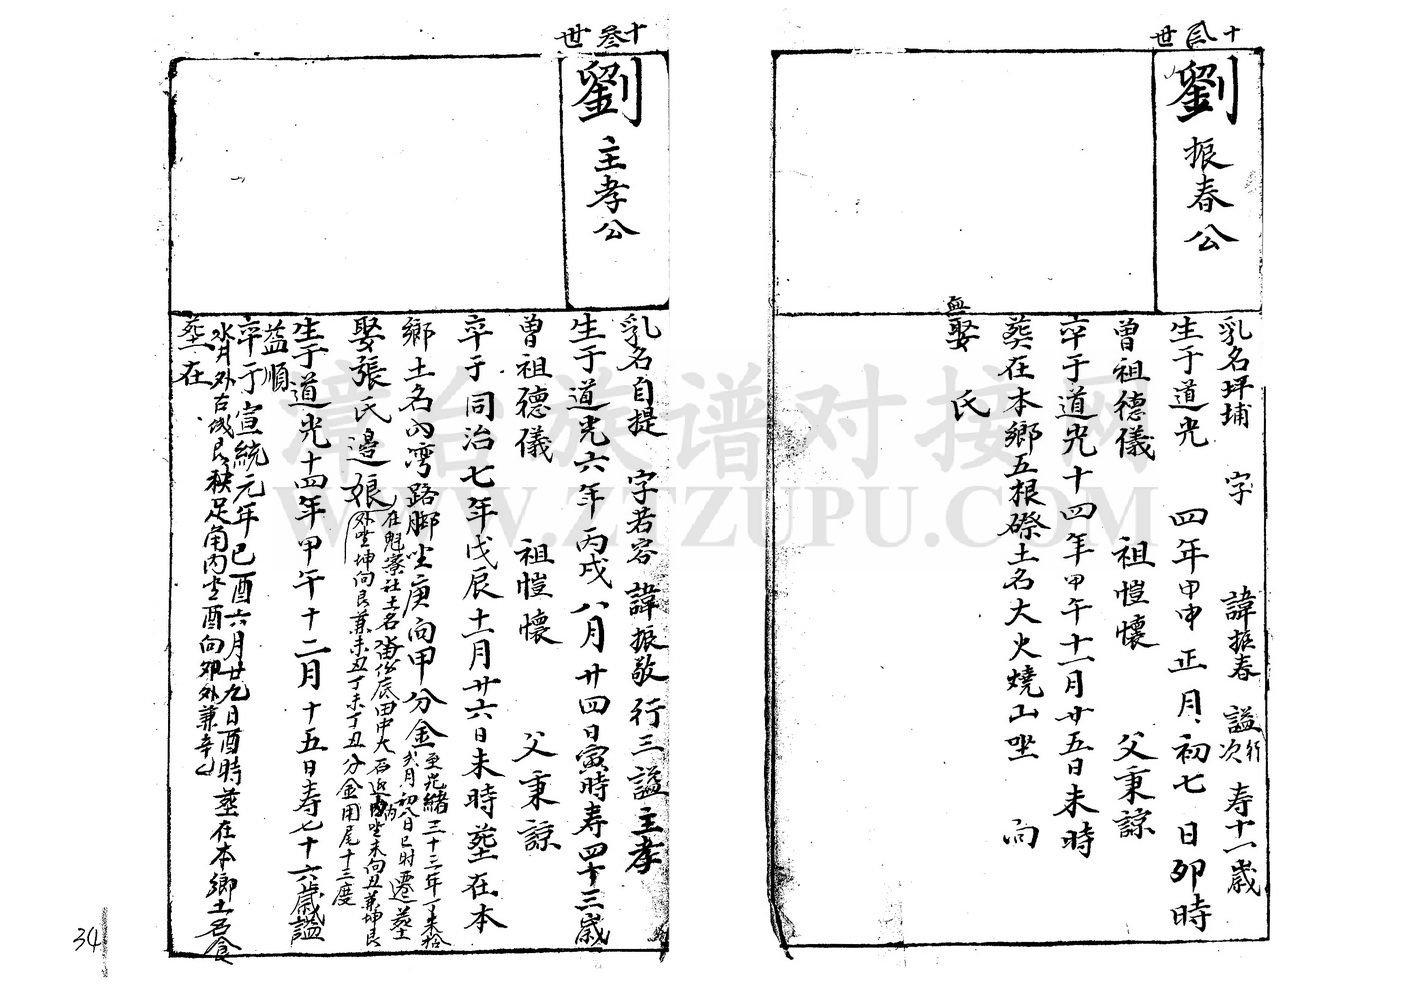 十叁世
劉振春公
乳名坪埔 字 諱振春 謚 行次 寿十一歲
生于道光 四年甲申 正月初七日卯時
曾祖德儀 祖愷懷 父秉諒
卒于道光十四年甲午十一月廿五日未時
葬在本鄉五根磜土名大火燒山坐 向
無娶 氏
十叁世
劉主孝公
乳名自提 字若容 諱振敬行三謚主孝
生于道光六年丙戌八月廿四日寅時寿四十三歲
曾祖德儀 祖愷懷 父秉諒
卒于同治七年戊辰十一月廿六日未時葬在本
鄉土名內湾路脚坐庚向甲分金 至光緒三十三年丁未拾
弍月初八日巳時遷葬
在魁寮社土名 底田中大石 坐未向丑兼坤艮
外坐坤向艮兼未丑丁未丁丑分金用尾十三度
娶張氏邊娘
生于道光十四年甲午十二月十五日寿七十六歲謚
益順
卒于宣統元年己酉六月廿九日酉時葬在本鄉土名食
水井外古 艮秧足角內坐酉向卯外兼辛乙
葬在
章台族谱对接网
WWW.ZTZUPU.COM
34